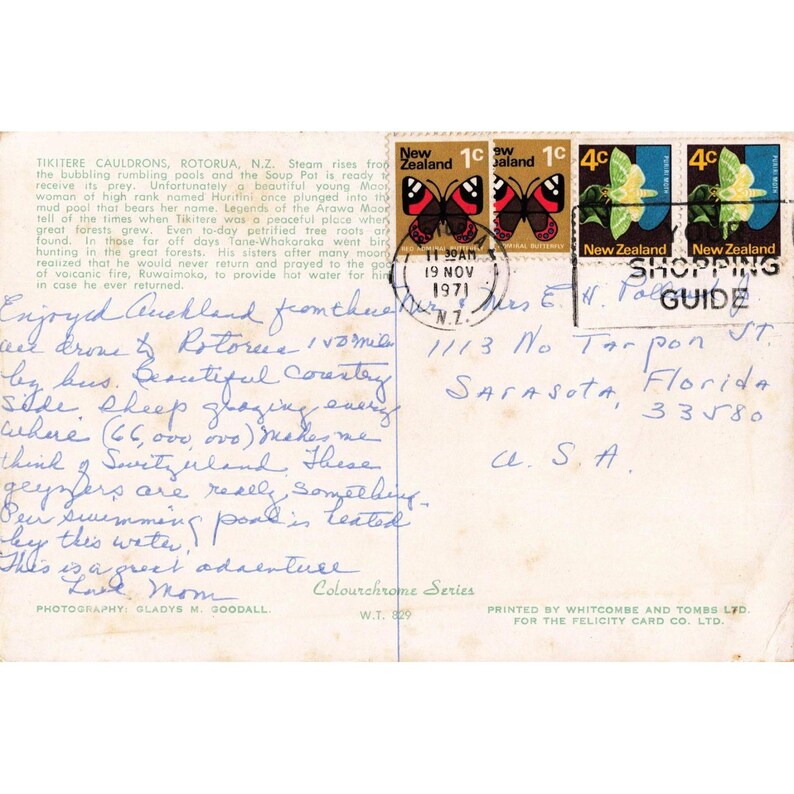 TIKITERE CAULDRONS, ROTORUA, N.Z. Steam rises from
the bubbling rumbling pools and the Soup Pot is ready
receive its prey. Unfortunately a beautiful young Maor
woman of high rank named Huritini once plunged into the
mud pool that bears her name. Legends of the Arawa Mao
tell of the times when Tikitere was a peaceful place wher
great forests grew. Even to-day petrified tree roots
found. In those far off days Tane-Whakaraka went bir
hunting in the great forests. His sisters after many moon
realized that he would never return and prayed to the go
of volcanic fire, Ruwaimoka, to provide hot water for hi
in case he ever returned.
Enjoyed Auckland from there
we drove to Rotorua 150 miles
by bus. Beautiful Country
side, sheep grazing every
where (66,000,000) Makes me
think of Switzerland. These
geyzers are really something.
Our swimming pool is heated
by this water!
This is a great adventure
Love Mom
PHOTOGRAPHY: GLADYS M. GOODALL.
Colourchrome Series
W.T. 829
New Zealand 1c
RED ADMIRAL BUTTERFLY
ealand 1c
ADMIRAL BUTTERFLY
4c
PURIRI MOTH
New Zealand
4c
PURIRI MOTH
New Zealand
11 30AM
19 NOV
1971
N.Z.
YOUR
SHOPPING
GUIDE
Mr & Mrs E. H. Pollard Jr.
1113 No Tarpon St.
Sarasota, Florida
33580
U.S.A.
PRINTED BY WHITCOMBE AND TOMBS LTD.
FOR THE FELICITY CARD CO. LTD.